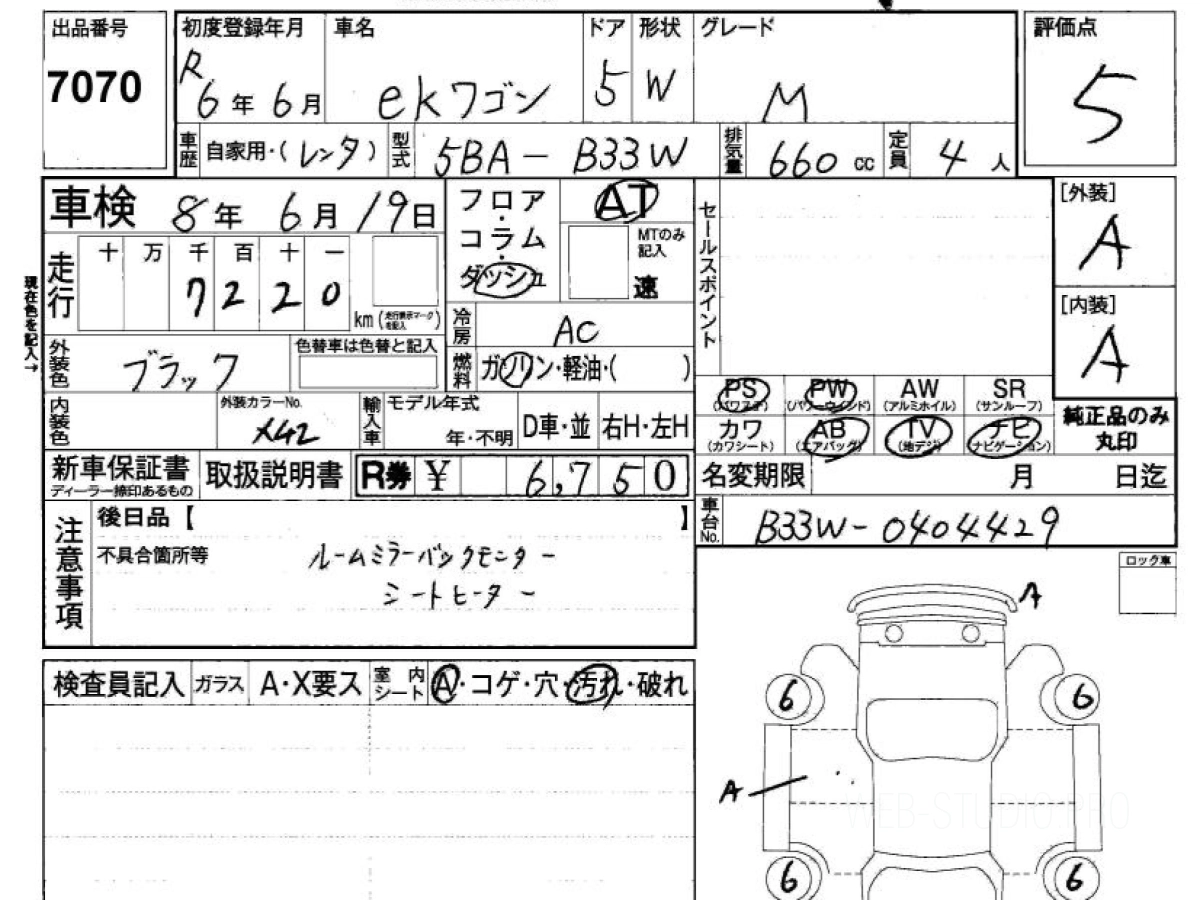 出品番号 初度登録年月 車名 ドア 形状 グレード 評価点
7070 R6年6月 ekワゴン 5 W M 5
車歴 自家用・(レンタ) 型式 5BA-B33W 排気量 660cc 定員 4人
車検 8年6月19日 フロア・コラム・ダッシュ AT セールスポイント [外装]
MTのみ記入 速 A
走行 十 万 千 百 十 一
7 2 2 0 km (走行表示マークを記入)
現在色を記入→
[内装]
A
冷房 AC
外装色 ブラック 色替車は色替と記入 燃料 ガソリン・軽油・( )
PS PW AW SR
(パワステ) (パワーウインド) (アルミホイル) (サンルーフ)
内装色 外装カラーNo. X42 輸入車 モデル年式 年・不明 D車・並 右H・左H
カワ AB TV ナビ 純正品のみ丸印
(カワシート) (エアバッグ) (地デジ) (ナビゲーション)
新車保証書 取扱説明書 R券 ¥ 6,750 名変期限 月 日迄
ディーラー捺印あるもの
車台No. B33W-0404429
注意事項 後日品【 】
不具合箇所等 ルームミラーバックモニター
シートヒーター
ロック車
A
検査員記入 ガラス A・X要ス 室内シート A・コゲ・穴・汚れ・破れ
6 6
A
WEB-STUDIO.PRO
6 6